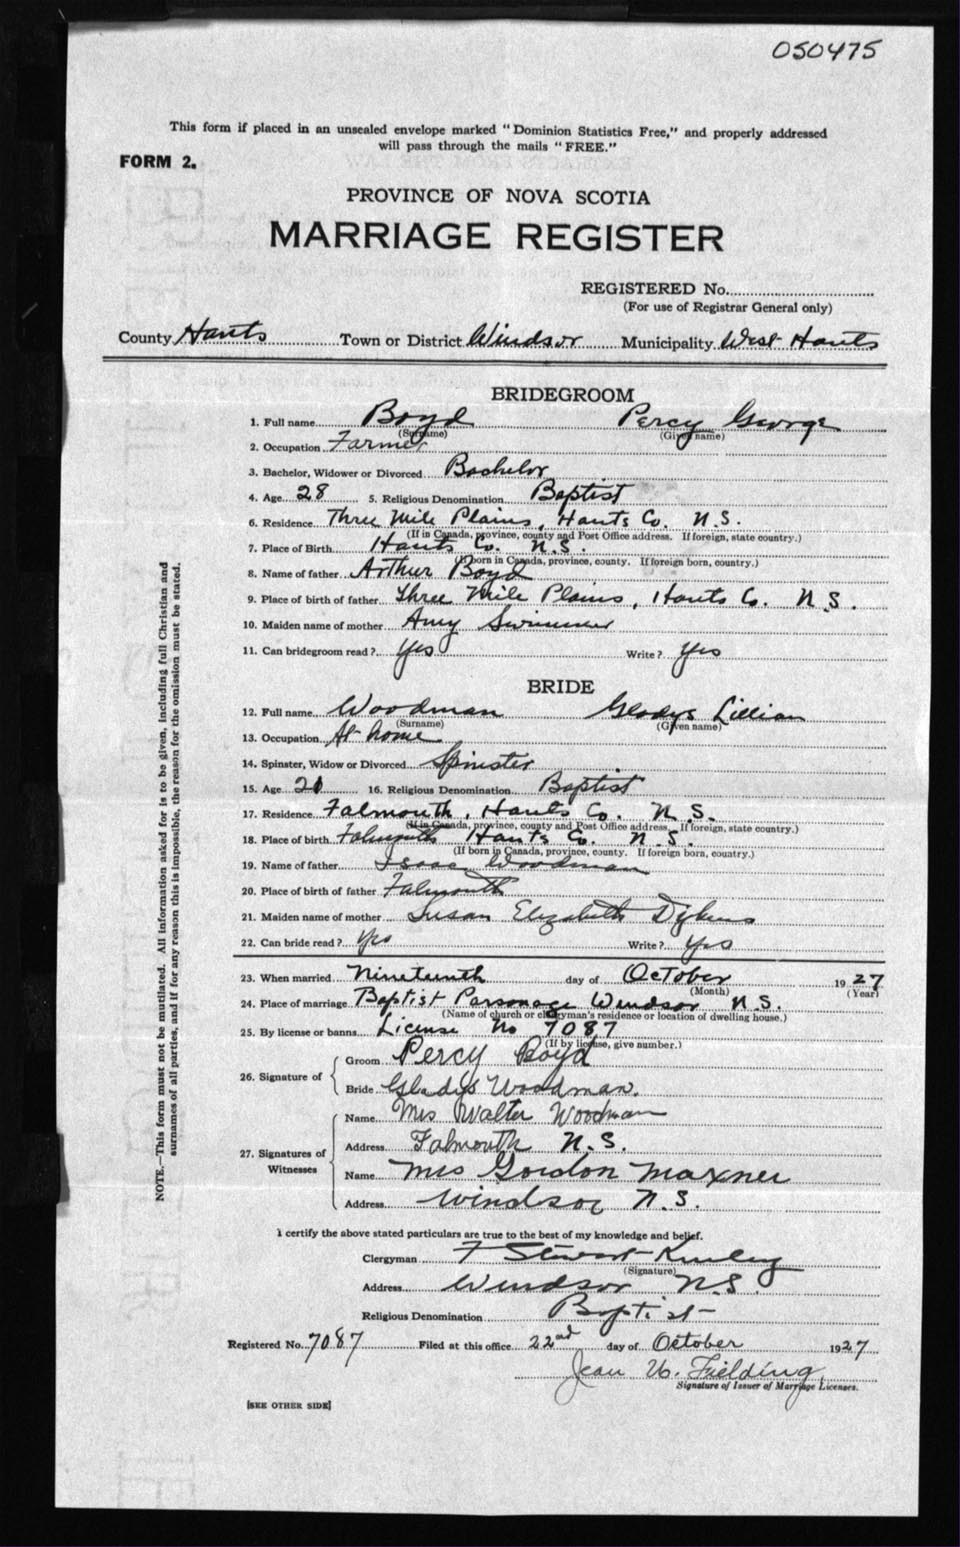 050475
This form if placed in an unsealed envelope marked "Dominion Statistics Free," and properly addressed
will pass through the mails "FREE."
FORM 2.
PROVINCE OF NOVA SCOTIA
MARRIAGE REGISTER
REGISTERED No.
(For use of Registrar General only)
County Hants Town or District Windsor Municipality West Hants
BRIDEGROOM
1. Full name Boyd Percy George
(Surname) (Given name)
2. Occupation Farmer
3. Bachelor, Widower or Divorced Bachelor
4. Age 28 5. Religious Denomination Baptist
6. Residence Three Mile Plains, Hants Co. N.S.
(If in Canada, province, county and Post Office address. If foreign, state country.)
7. Place of Birth Hants Co. N.S.
(If born in Canada, province, county. If foreign born, country.)
8. Name of father Arthur Boyd
9. Place of birth of father Three Mile Plains, Hants Co. N.S.
10. Maiden name of mother Amy Swimmer
11. Can bridegroom read? Yes Write? Yes
BRIDE
12. Full name Woodman Gladys Lillian
(Surname) (Given name)
13. Occupation At home
14. Spinster, Widow or Divorced Spinster
15. Age 21 16. Religious Denomination Baptist
17. Residence Falmouth, Hants Co. N.S.
(If in Canada, province, county and Post Office address. If foreign, state country.)
18. Place of birth Falmouth Hants Co. N.S.
(If born in Canada, province, county. If foreign born, country.)
19. Name of father Isaac Woodman
20. Place of birth of father Falmouth
21. Maiden name of mother Susan Elizabeth Dykens
22. Can bride read? Yes Write? Yes
23. When married Nineteenth day of October 1927
(Month) (Year)
24. Place of marriage Baptist Parsonage Windsor N.S.
(Name of church or clergyman's residence or location of dwelling house.)
25. By license or banns License No 7087
(If by license, give number.)
26. Signature of
Groom Percy Boyd
Bride Gladys Woodman.
27. Signatures of Witnesses
Name Mrs Walter Woodman
Address Falmouth N.S.
Name Mrs Gordon Maxner
Address Windsor N.S.
I certify the above stated particulars are true to the best of my knowledge and belief.
Clergyman F Stewart Kinley
(Signature)
Address Windsor N.S.
Religious Denomination Baptist
Registered No. 7087 Filed at this office 22nd day of October 1927
Jean W. Fielding
Signature of Issuer of Marriage Licenses.
[SEE OTHER SIDE]
NOTE.—This form must not be mutilated. All information asked for is to be given, including full Christian and
surnames of all parties, and if for any reason this is impossible, the reason for the omission must be stated.